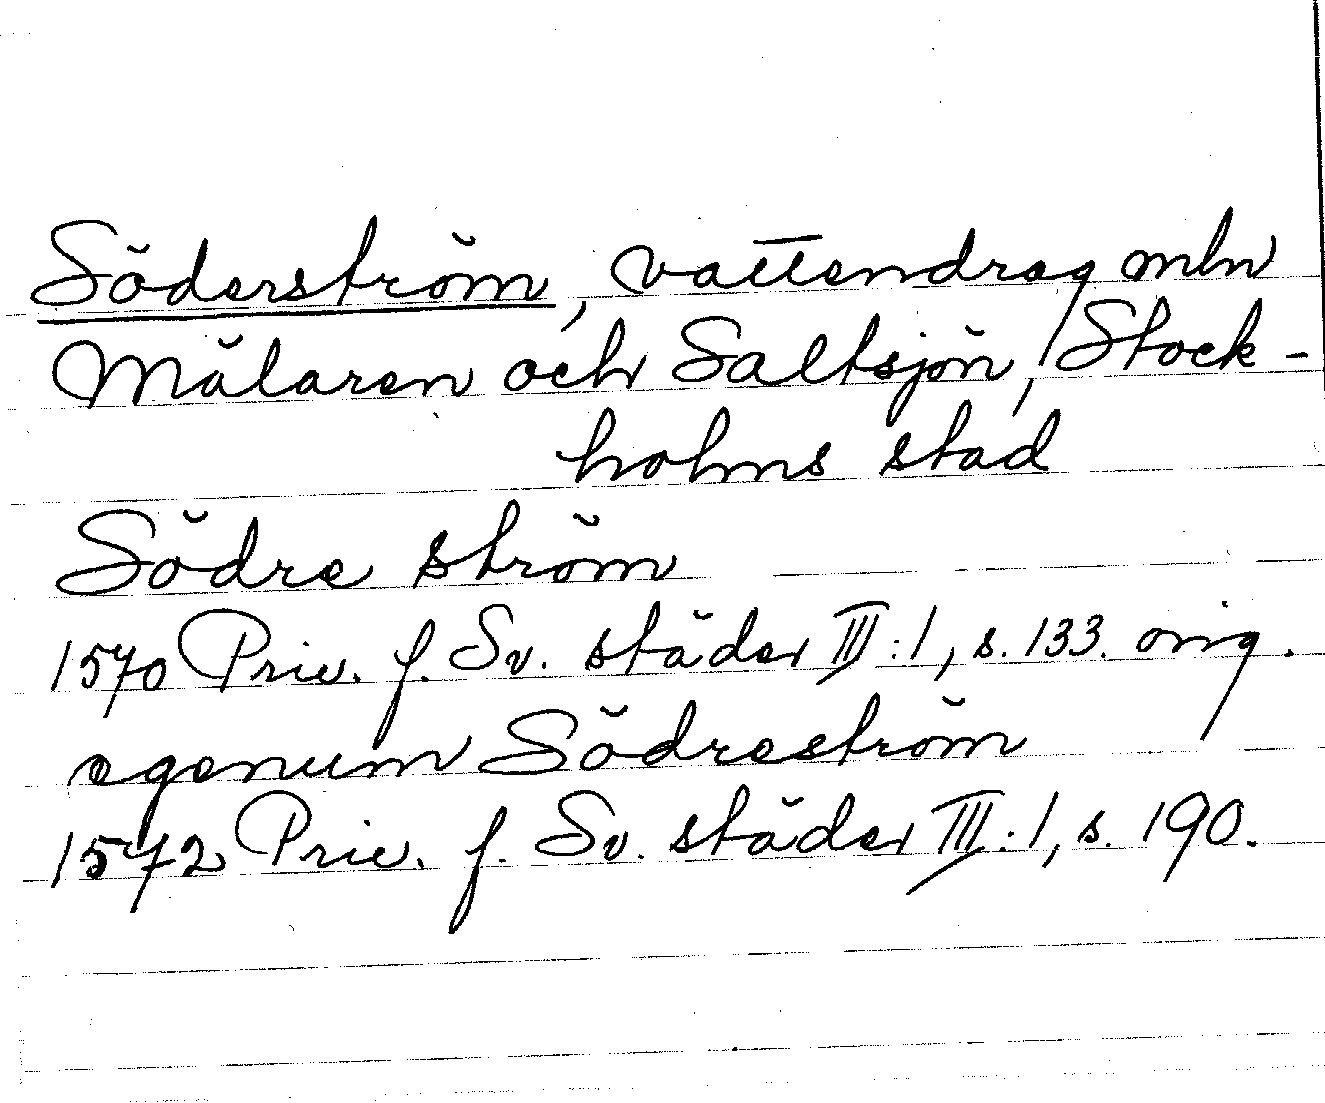 Söderström, vattendrag mln
Mälaren och Saltsjön, Stock-
holms stad
Södre ström
1570 Priv. f. Sv. städer III:1, s. 133. orig.
egenum Södreström
1572 Priv. f. Sv. städer III:1, s. 190.